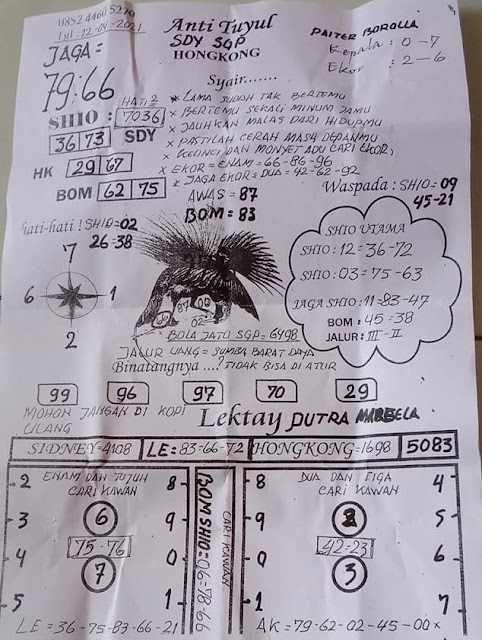 0852 4460 5210
Tgl: 12-04-2021
Anti Tuyul
SDY SGP
HONGKONG
PAITER BOROLLA
Kepala: 0-7
Ekor: 2-6
JAGA =
79:66
Syair.......
HATI2
* LAMA SUDAH TAK BERTEMU
SHIO: 7036
* BERTEMU SEKALI MINUM JAMU
36 73 SDY
* JAUHKAN MALAS DARI HIDUPMU
* PASTILAH CERAH MASA DEPANMU
* KELINCI DAN MONYET ADU CARI EKOR,
HK 29 67
* EKOR = ENAM = 66-86-96
* JAGA EKOR = DUA = 42-62-92
BOM 62 75
AWAS = 87
BOM = 83
Waspada: SHIO = 09
45-21
Hati-hati! SHIO = 02
26=38
7
6 1
2
87 00
02
SHIO UTAMA
SHIO: 12 = 36-72
SHIO: 03 = 75-63
JAGA SHIO: 11 = 83-47
BOM: 45 = 38
JALUR: III - II
BOLA JATU SGP = 6498
JALUR UANG = SUMBA BARAT DAYA
Binatangnya ...? TIDAK BISA DI ATUR
99 96 97 70 29
MOHON JANGAN DI KOPI
ULANG
Lektay PUTRA MARBELA
SIDNEY=4108 LE=83-66-72 HONGKONG=1698 5083
2 ENAM DAN TUJUH 8
CARI KAWAN
3 6 9
4 75=76 0
7
5 1
LE = 36-75-83-66-21
BOM SHIO=06=78-66
CARI KAWAN
8 DUA DAN TIGA 4
CARI KAWAN
9 2 5
0 42=23 6
3
1 7
AK = 79-62-02-45-00 x